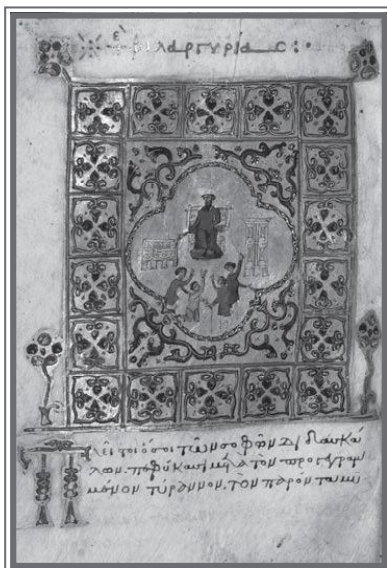 φιλαργυρίας:
Πλεῖστοι ὅσοι τῶν σοφῶν διδασκά
λων. πεφύκασι μετὰ τὸν προγεγραμ
μένον τύραννον, τὸν παρόντα μυ